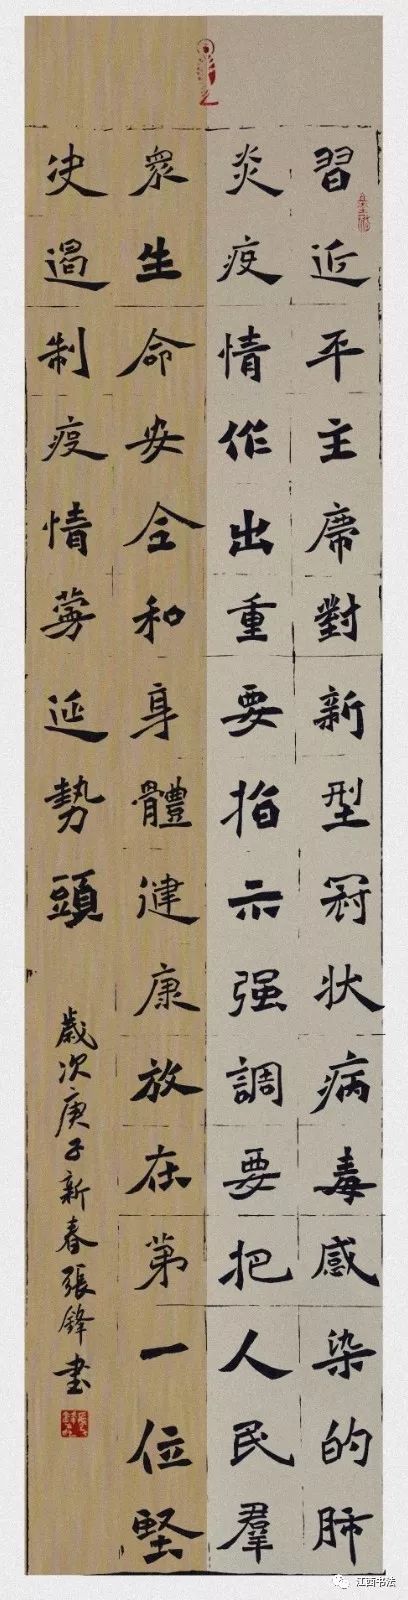 習近平主席對新型冠状病毒感染的肺
炎疫情作出重要指示强調要把人民羣
衆生命安全和身體健康放在第一位堅
决遏制疫情蔓延勢頭
歲次庚子新春張鋒書
江西书法